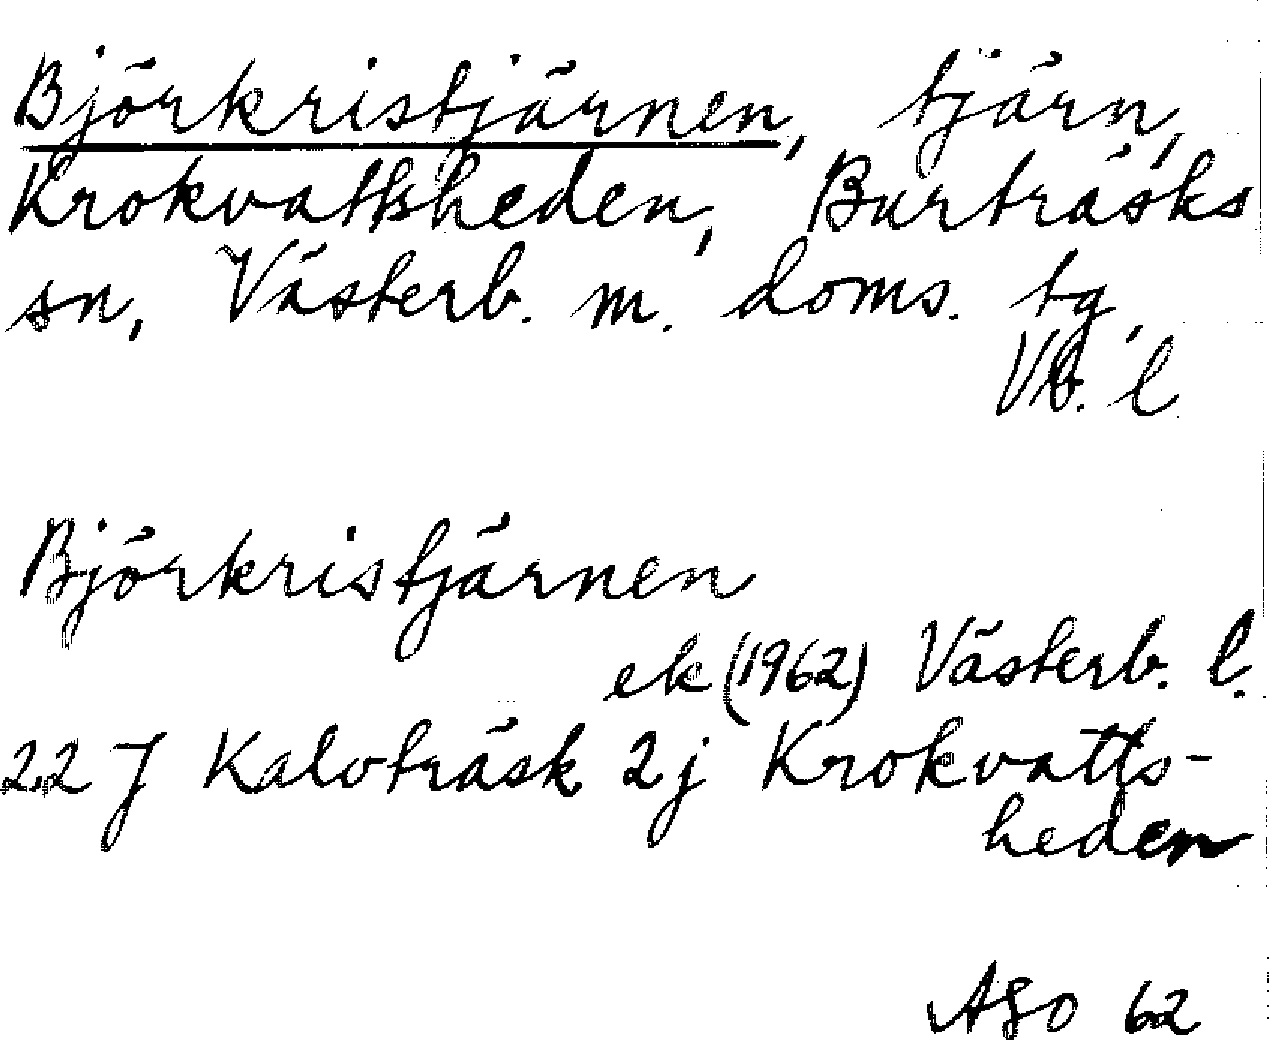 Björkristjärnen, tjärn,
Krokvattsheden, Burträsks
sn, Västerb. m. doms. tg,
Vb. l
Björkristjärnen
ek (1962) Västerb. l.
22 J Kalvträsk 2j Krokvatts-
heden
AGO 62